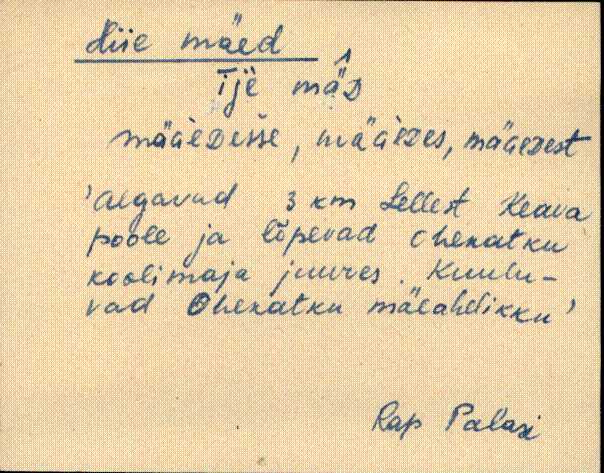 Hiie mäed
Ijĕ mäᴅ
määᴇᴅešše, määᴇᴅes, määᴇᴅest
'Algavad 3 km Lellest Keava
poole ja lõpevad Ohekatku
koolimaja juures. Kuulu-
vad Ohekatku mäeahelikku'
Rap Palasi